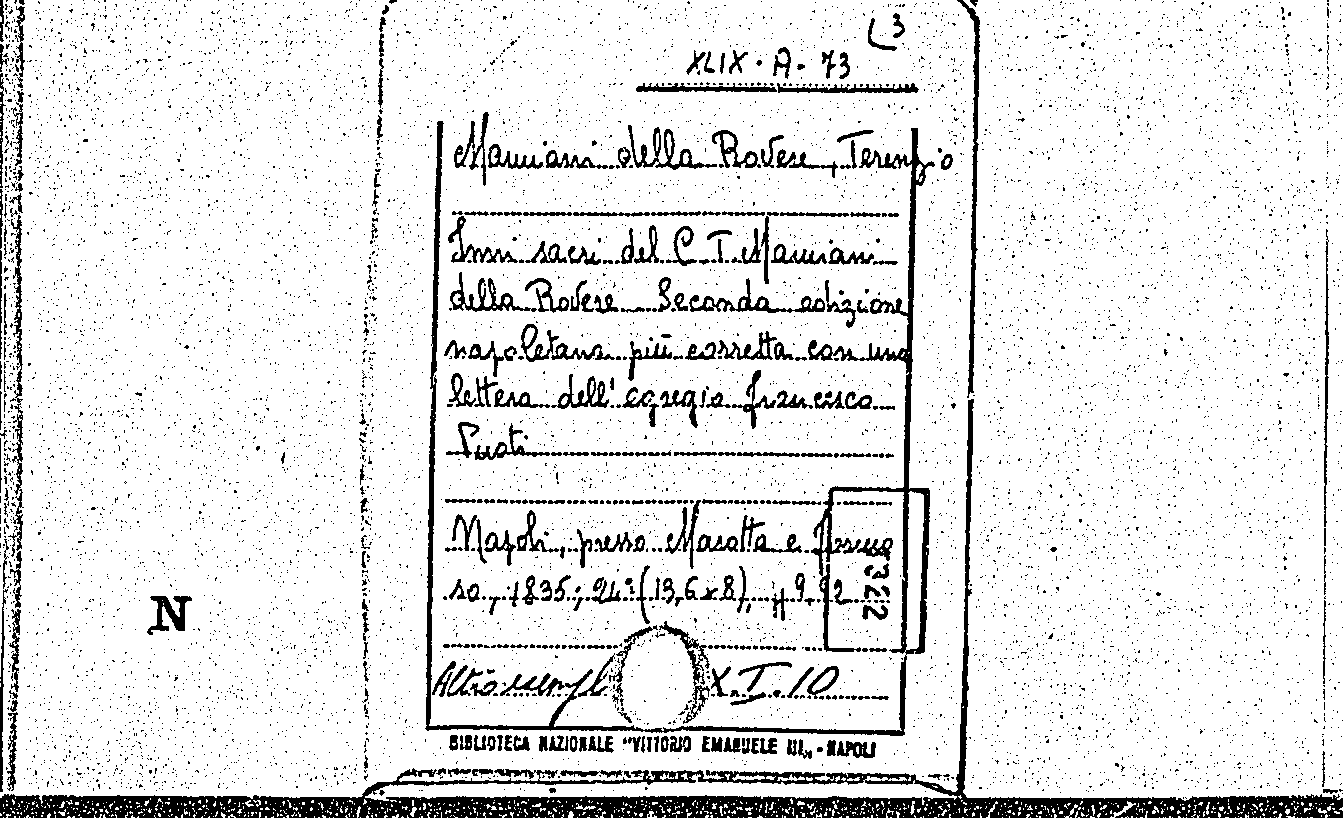 3
XLIX. A. 73
Mamiani della Rovere, Terenzio
Inni sacri del C. T. Mamiani
della Rovere. Seconda edizione
napoletana più corretta con una
lettera dell' egregio Francesco
Puoti
Napoli, presso Marotta e
so, 1835; 24° (13,6 x 8), 92
322
N
Altro X.I.10
BIBLIOTECA NAZIONALE "VITTORIO EMANUELE III„ - NAPOLI